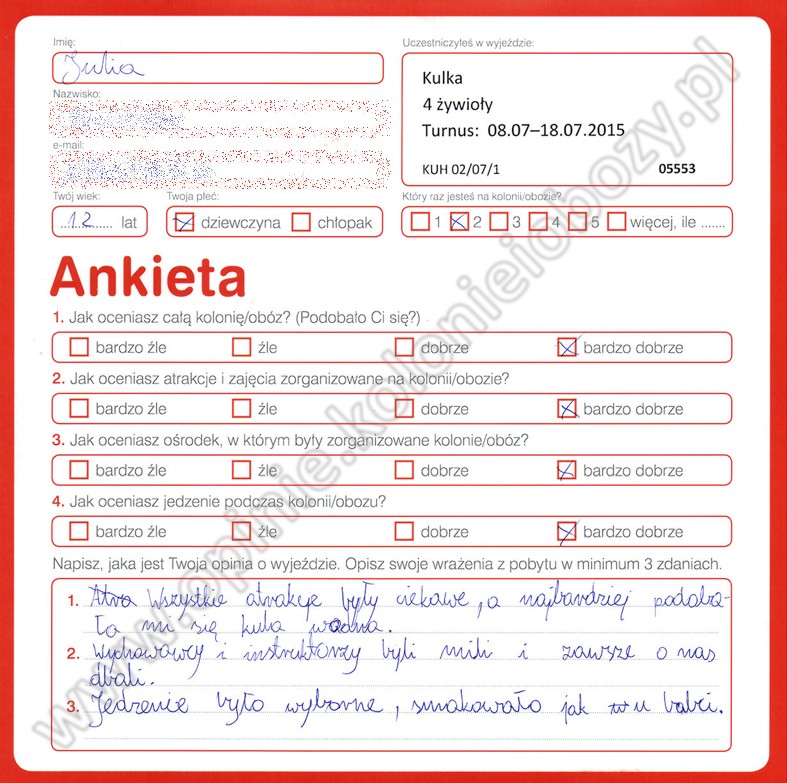 Imię:
Julia
Uczestniczyłeś w wyjeździe:
Kulka
4 żywioły
Turnus: 08.07–18.07.2015
KUH 02/07/1 05553
Nazwisko:
e-mail:
Twój wiek:
12 lat
Twoja płeć:
dziewczyna chłopak
Który raz jesteś na kolonii/obozie?
1 2 3 4 5 więcej, ile .......
Ankieta
1. Jak oceniasz całą kolonię/obóz? (Podobało Ci się?)
bardzo źle źle dobrze bardzo dobrze
2. Jak oceniasz atrakcje i zajęcia zorganizowane na kolonii/obozie?
bardzo źle źle dobrze bardzo dobrze
3. Jak oceniasz ośrodek, w którym były zorganizowane kolonie/obóz?
bardzo źle źle dobrze bardzo dobrze
4. Jak oceniasz jedzenie podczas kolonii/obozu?
bardzo źle źle dobrze bardzo dobrze
Napisz, jaka jest Twoja opinia o wyjeździe. Opisz swoje wrażenia z pobytu w minimum 3 zdaniach.
1. Wszystkie atrakcje były ciekawe, a najbardziej podoba-
ła mi się kula wodna.
2. Wychowawcy i instruktorzy byli mili i zawsze o nas
dbali.
3. Jedzenie było wyborne, smakowało jak u babci.
www.opinie.kolonieiobozy.pl